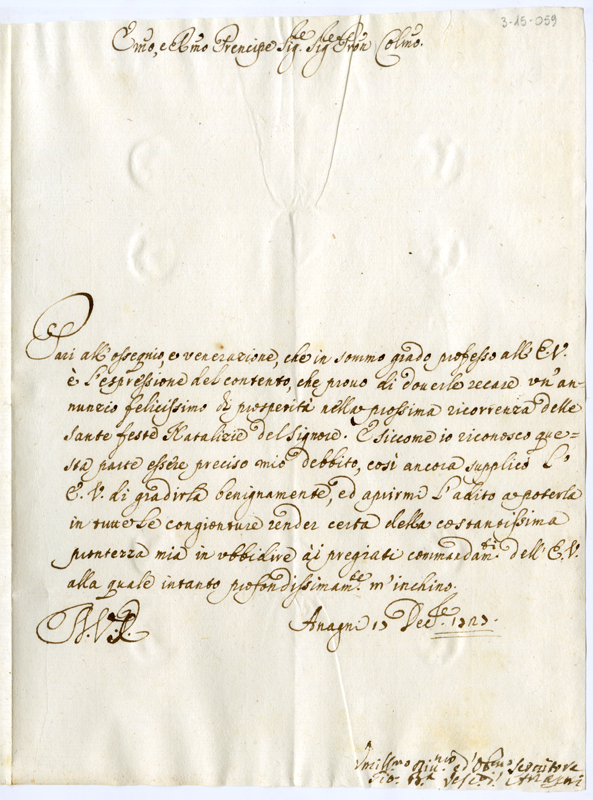 3-15-059
Emo, e Rmo Prencipe Sig.re Sig.re Pron Colmo.
Pari all'ossequio, e venerazione, che in sommo grado professo all'E.V.
è l'espressione del contento, che provo di doverle recare un'an-
nunzio felicissimo di prosperità nella prossima ricorrenza delle
Sante feste Natalizie del Signore. E siccome io riconosco que=
sta parte essere preciso mio debbito, così ancora supplico l'
E.V. di gradirla benignamente, ed aprirmi l'adito a poterla
in tutte le congionture render certa della costantissima
prontezza mia in ubbidire ài pregiati commandam.ti dell'E.V.
alla quale intanto profondissimam.te m'inchino.
Anagni 15 Dec.re 1727.
Umiliss.mo ed Obb.mo Servitore
Gio. B.ta Vesc.o d'Anagni